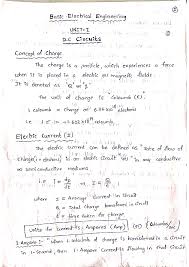 Basic Electrical Engineering
UNIT-I
D.C Circuits
Concept of Charge
The charge is a particle, which experiences a force
when it is placed in a electric or magnetic fields
It is denoted as "Q" or "q"
The unit of charge is "Coulomb (C)"
1 coulomb = charge of electrons
Electric Current (I)
The electric current can be defined as "Rate of flow of
charge (i.e electrons) in an electric circuit" in any conductive
or semi conductive medium.
where I = Average Current in Circuit
Q = Total charge transferred in circuit
t = Time taken for charge
Units for Current is Amperes (Amp) (or) Coulombs/sec
1 Ampere :- When 1 coulomb of charge is transferred in a circuit
in 1 second, then 1 Ampere Current is flowing in that circuit